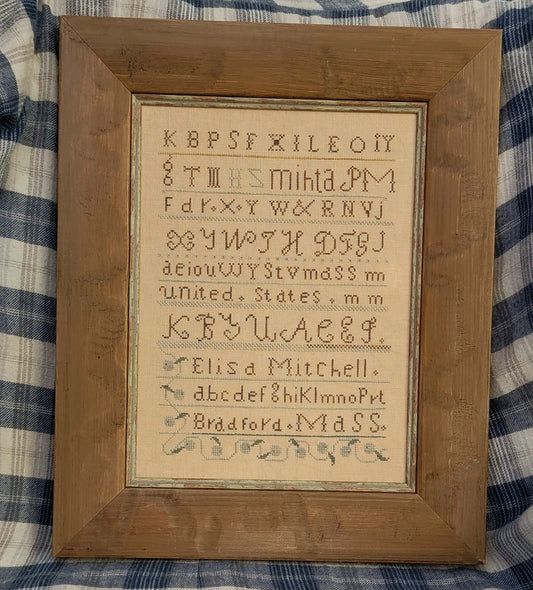 K B P S F X I L E O I Y
g T I I I H Z mihta P M
F d r . X . Y W & R N V j
Y W T H D F G J
a e i o u W Y S t v m d s s m
united . States . m m
K B Y U A C E F .
Elisa Mitchell .
abcdefghiKlmnoPrt
Bradford . MaSS .